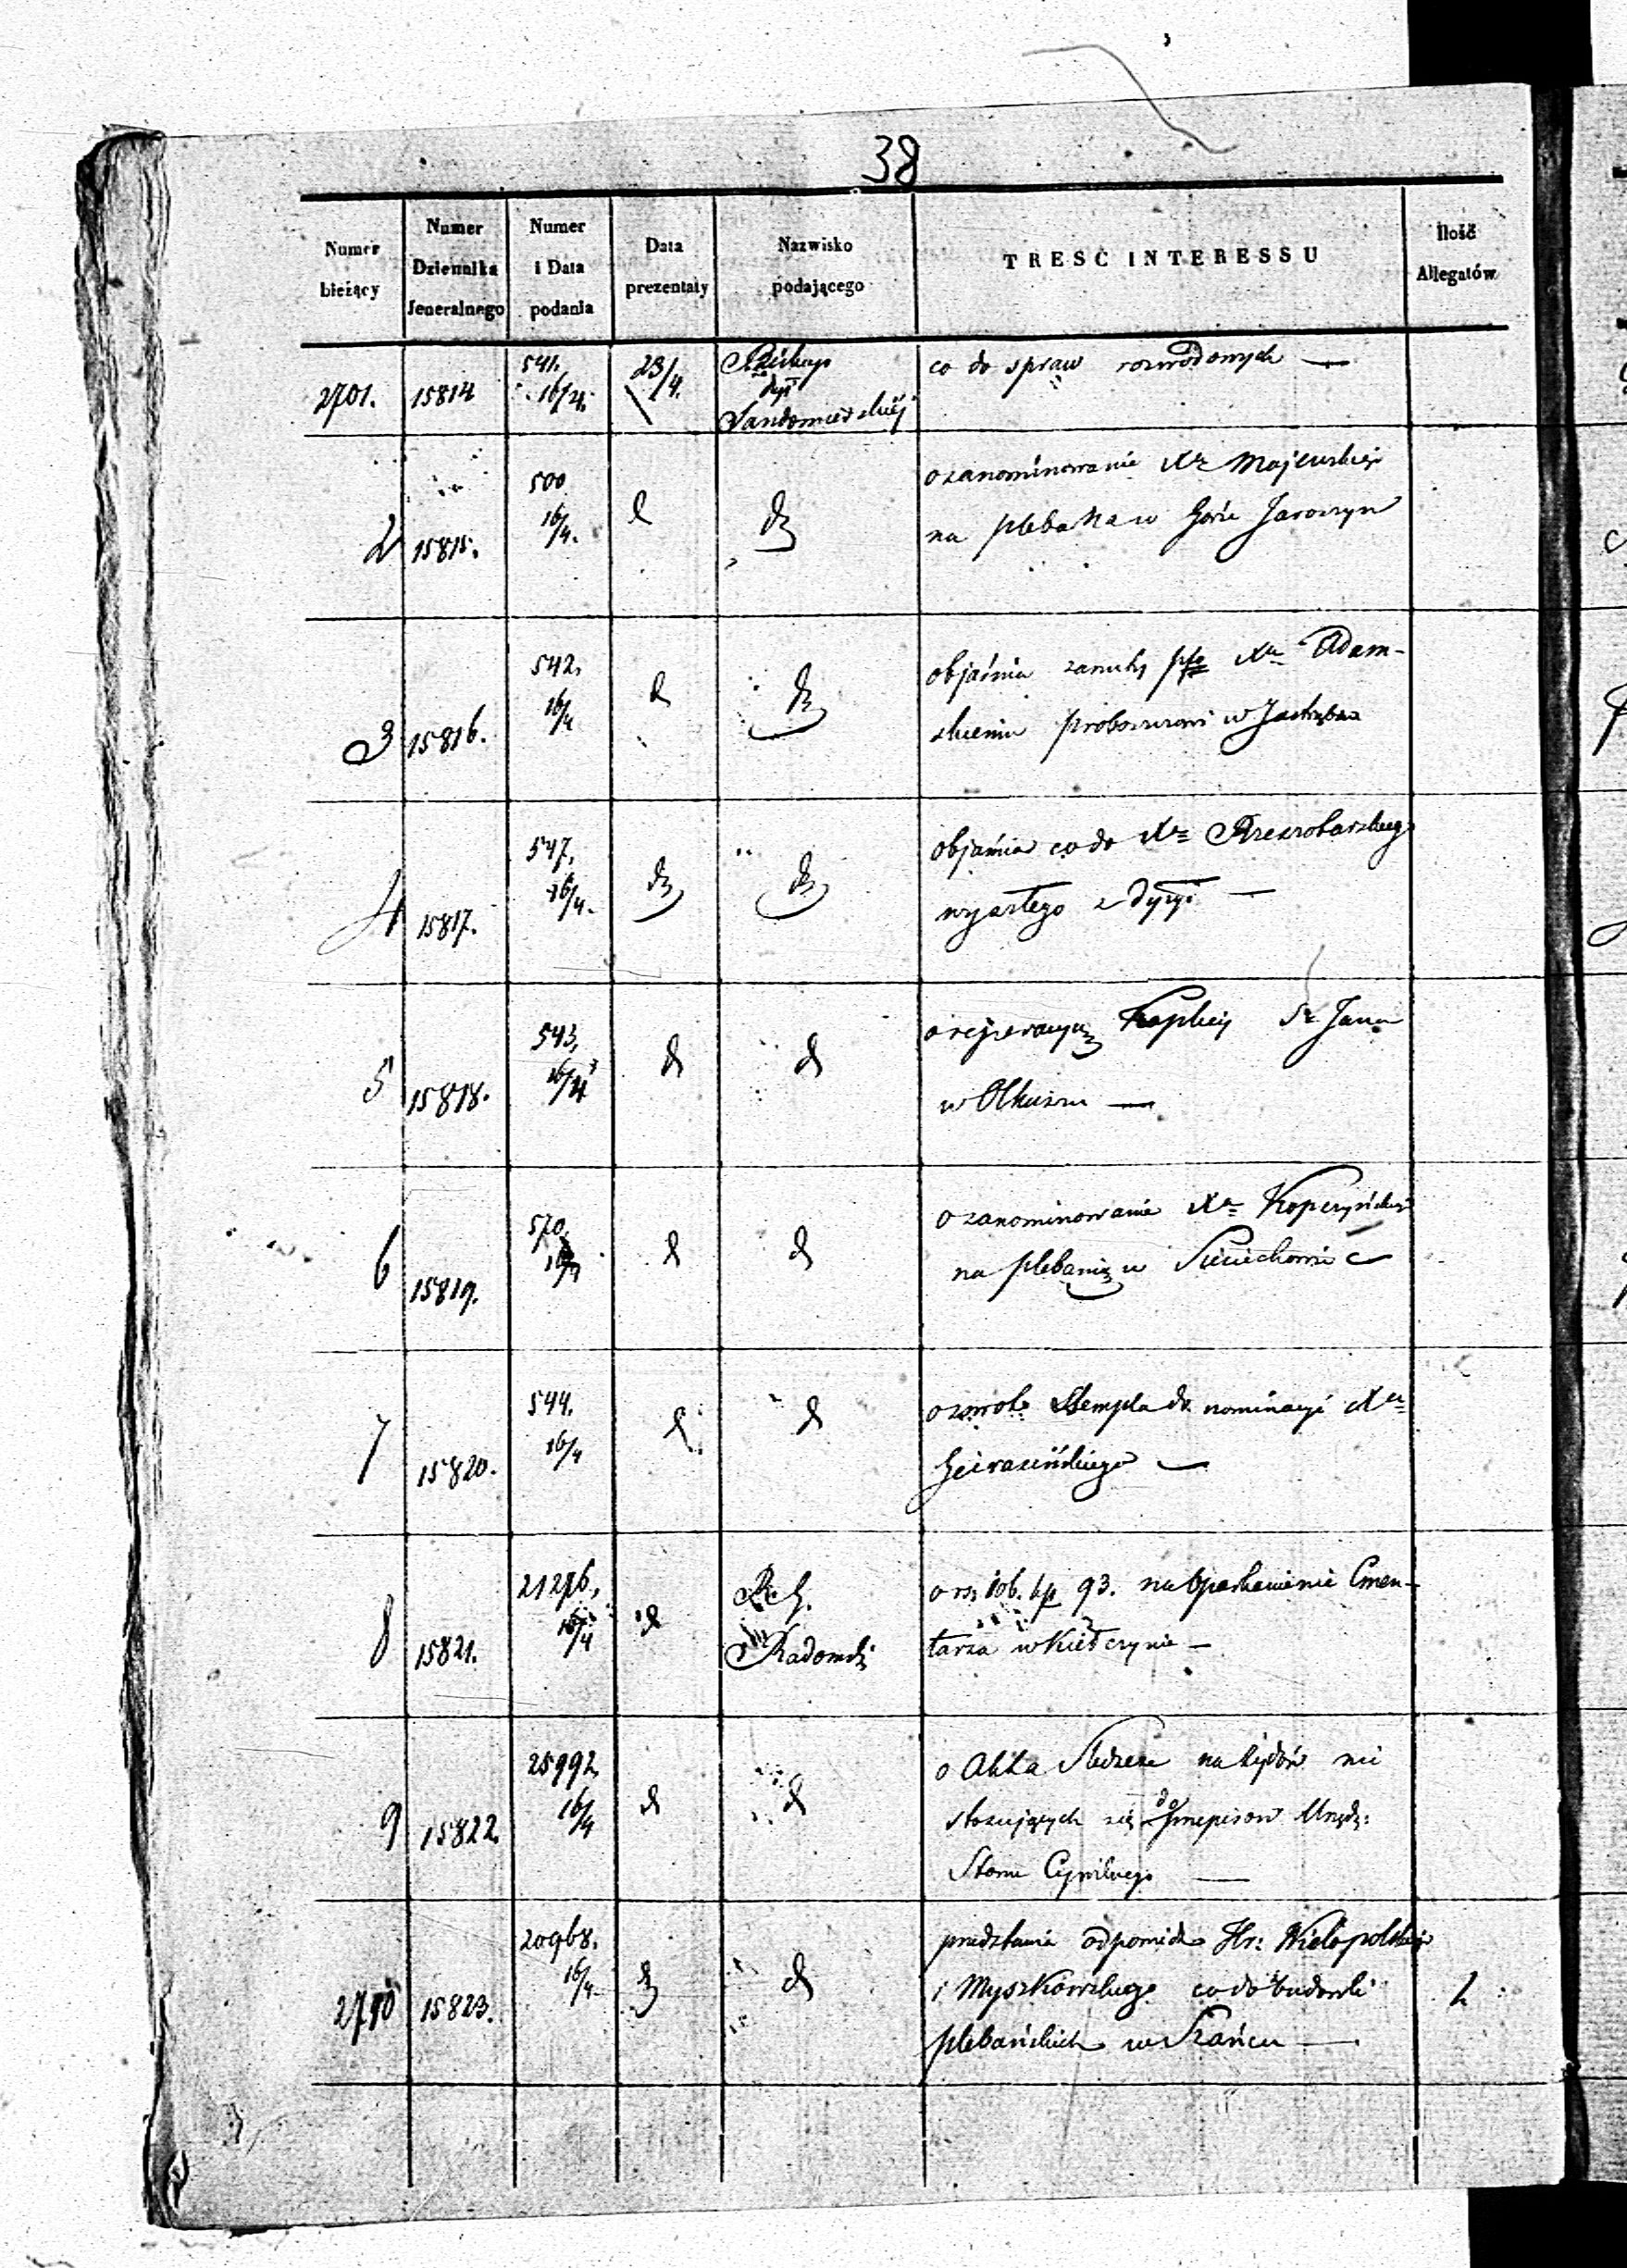 38
Numer bieżący
Numer Dziennika Jeneralnego
Numer i Data podania
Data prezentaty
Nazwisko podającego
TRESĆ INTERESSU
Ilość Allegatów
2701. 15814 541. 16/4. 23/4. Sandomierskiéj co do spraw rozwodowych —
2 15815. 500 16/4. d dz o zanominowanie Xa Majewskiego
na plebana w Górze Jaroszyn
3 15816. 542. 16/4 d dz objaśnia Xu Adam-
skiemu proboszczowi w
4 15817. 547. 16/4. dz dz objaśnia co do Xa
wyszłego z Dyezyi —
5 15818. 543. 16/4 d d o reperacyą Kaplicy S. Jana
w Olkuszu —
6 15819. 570. d d o zanominowanie Xa Kopczyńskiego
na plebanią w Sieciechowie
7 15820. 544. 16/4 d d o zwrot Stempla do nominacyi Xa
8 15821. 21276. 16/4 d R. G. Radomski o rs. 93. na oparkanienie Cmen-
tarza w Kiełczynie —
9 15822. 25992. 16/4 d d o na Żydów nie
stosujących się do przepisow Urzęd:
Stanu Cywilnego —
2710 15823. 20968. 16/4 dz d przedstawia odpowiedź Hr: Wielopolskiego
i Myszkowskiego co do budowli
plebańskich w Szańcu —